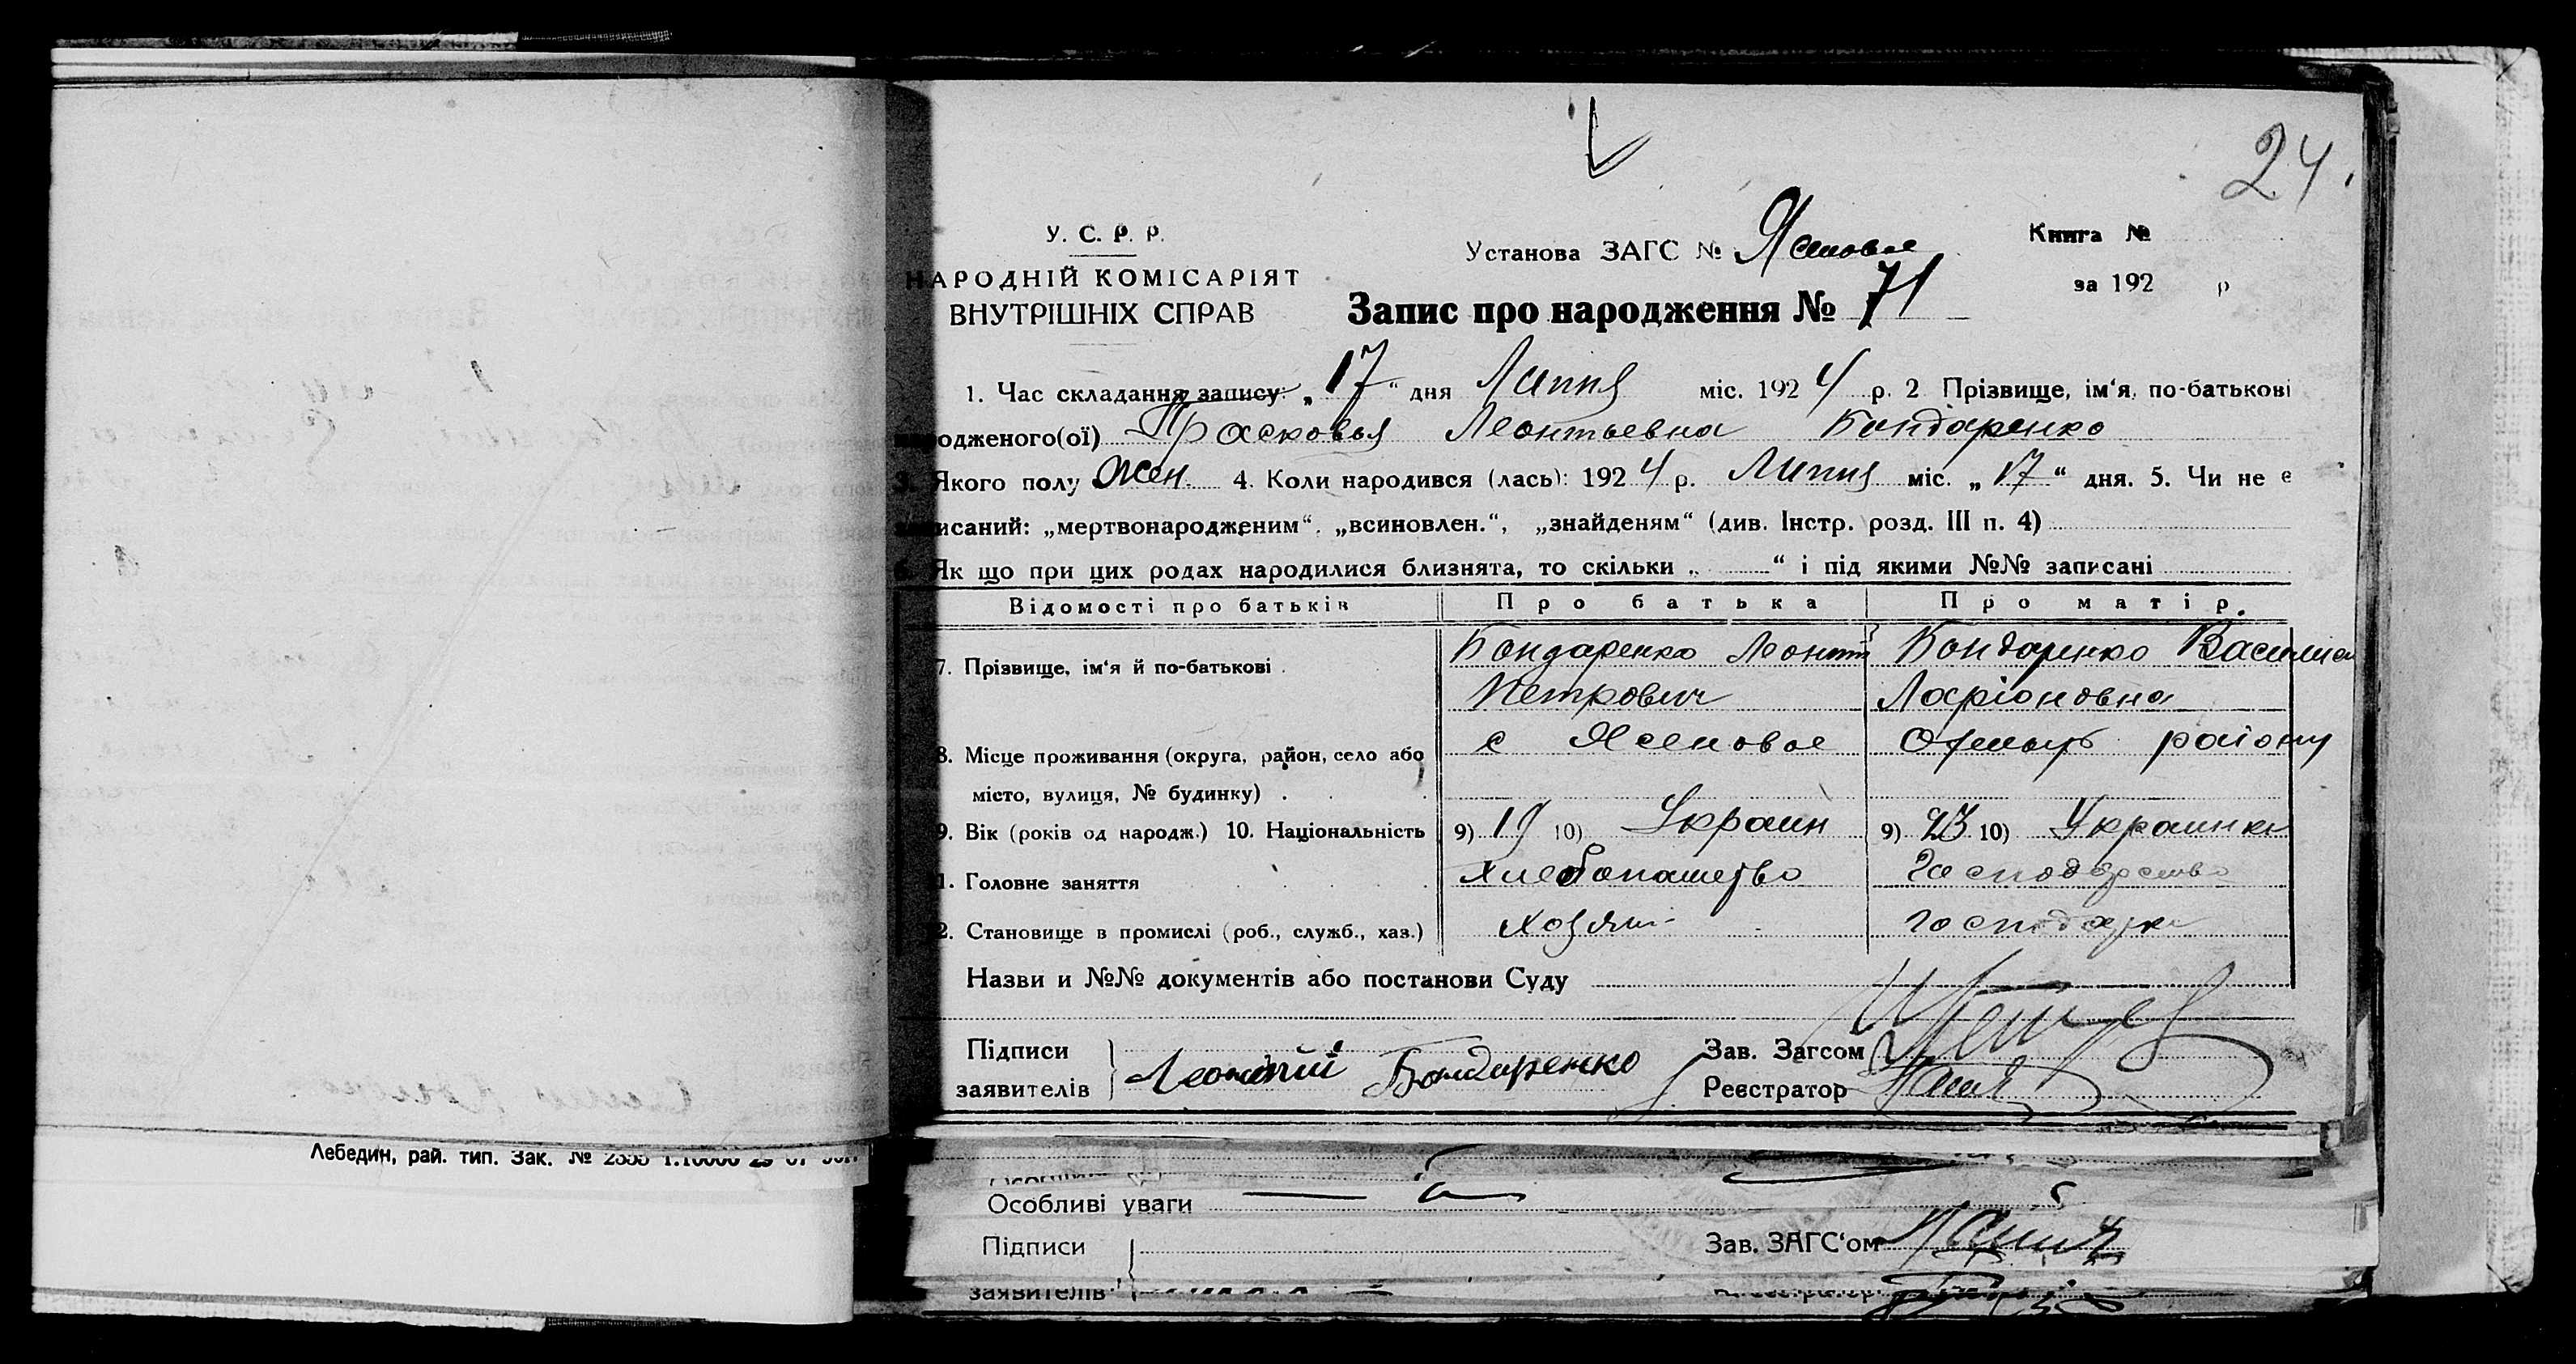 24.
У. С. Р. Р.
НАРОДНІЙ КОМІСАРІЯТ
ВНУТРІШНІХ СПРАВ
Установа ЗАГС № Ясеновое
Книга №
за 192 р
Запис про народження № 71
1. Час складання запису: „17“ дня Липня міс. 1924 р. 2 Прізвище, ім‘я, по-батькові
народженого(ої) Прасковья Леонтьевна Бондаренко
3. Якого полу Жен. 4. Коли народився (лась): 1924 р. Липня міс. „17“ дня. 5. Чи не є
записаний: „мертвонародженим“, „всиновлен.“, „знайденям“ (див. Інстр. розд. III п. 4)
6. Як що при цих родах народилися близнята, то скільки „ “ і під якими №№ записані
Відомості про батьків Про батька Про матір.
7. Прізвище, ім‘я й по-батькові Бондаренко Леонти Бондаренко
Петрович Ларіоновна
8. Місце проживання (округа, район, село або с Ясеновое району
місто, вулиця, № будинку)
9. Вік (років од народж.) 10. Національність 9) 19 10) Украин 9) 23 10) Украинка
11. Головне заняття Хлебопашество Господарство
12. Становище в промислі (роб., служб., хаз.) Хозяин Господарка
Назви и №№ документів або постанови Суду
Підписи
заявителів Леонтій Бондаренко
Зав. Загсом
Реєстратор
Лебедин, рай. тип. Зак. №
Особливі уваги
Підписи
Зав. ЗАГС‘ом
заявителів